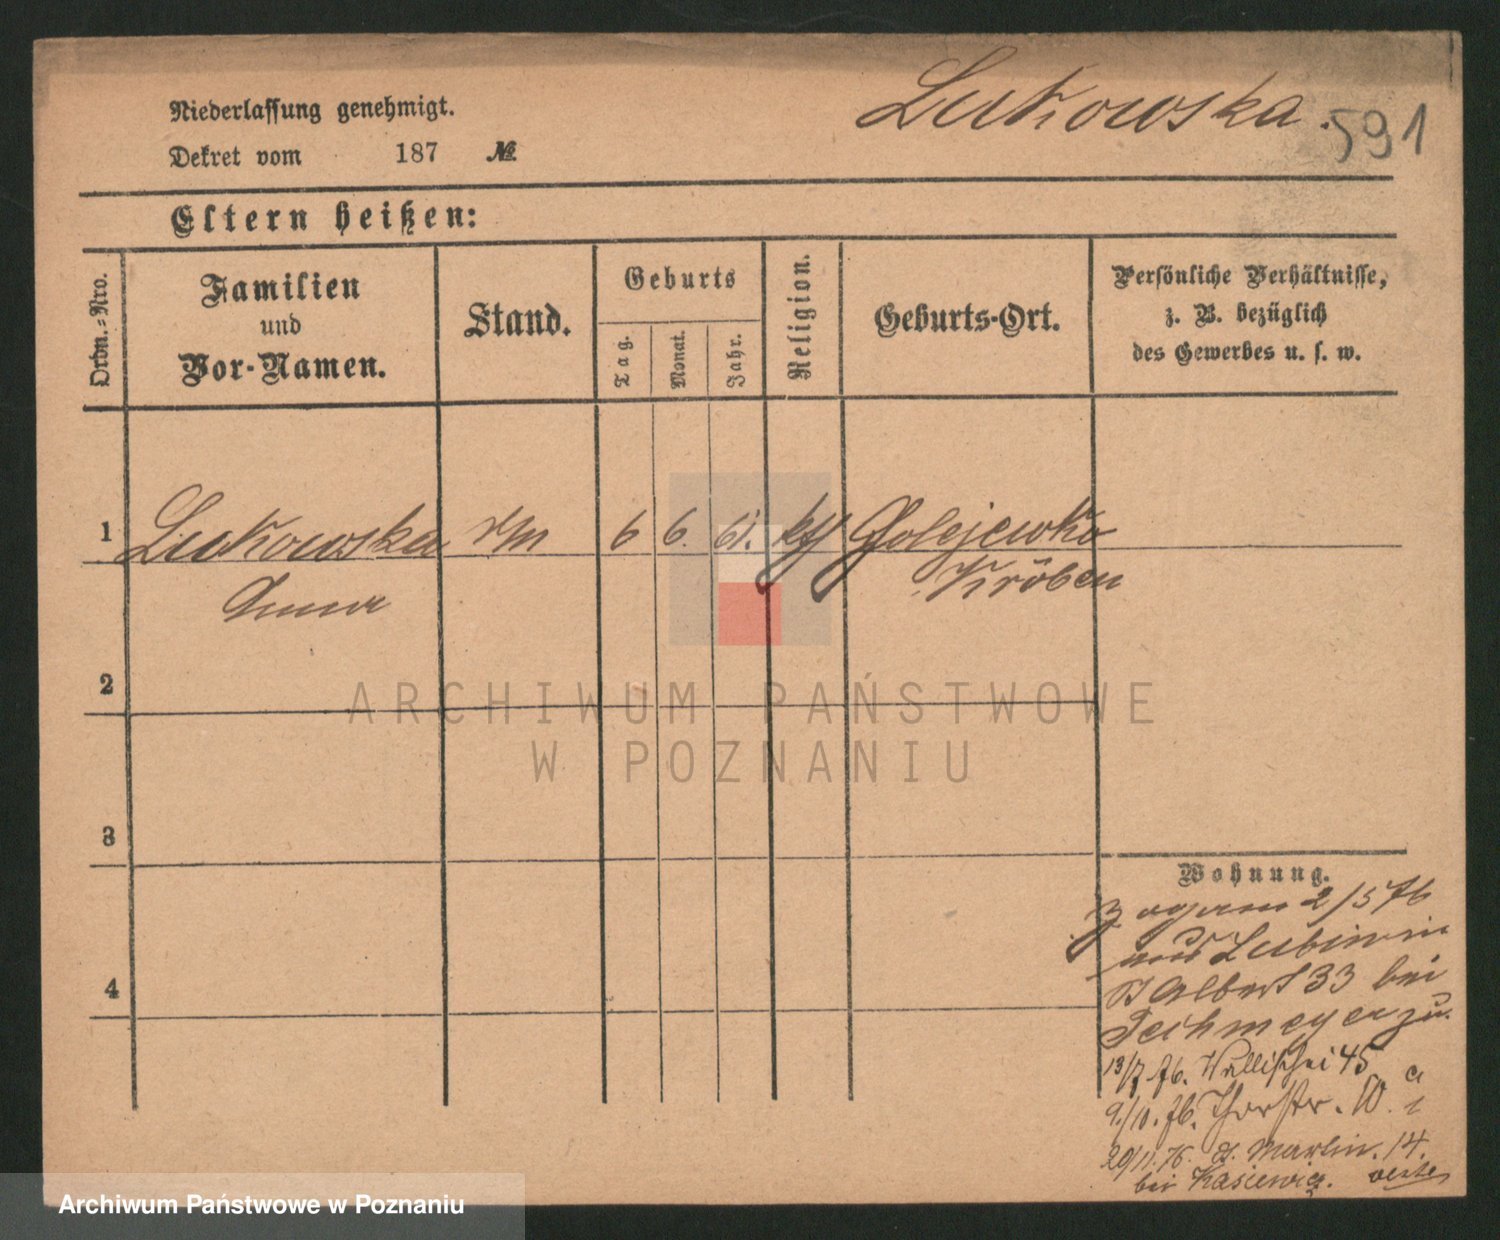 Lukowska. 591
Niederlassung genehmigt.
Dekret vom 187 №
Eltern heißen:
Ordn.-Nro.
Familien
und
Vor-Namen.
Stand.
Geburts
Tag.
Monat.
Jahr.
Religion.
Geburts-Ort.
Persönliche Verhältnisse,
z. B. bezüglich
des Gewerbes u. s. w.
1 Lukowska 6 6. 61. kth Golejewko
Anna Kröben
2
3
4
Wohnung.
Zogann 2/5 76
aus Lubin
St Albert 33 bei
Teichmeyer zu.
13/7 76. Wallischei 45
9./10. 76. Thorstr. 10.
29/11. 76. St. Martin. 14.
bei Kasiewicz.
ARCHIWUM PAŃSTWOWE
W POZNANIU
Archiwum Państwowe w Poznaniu